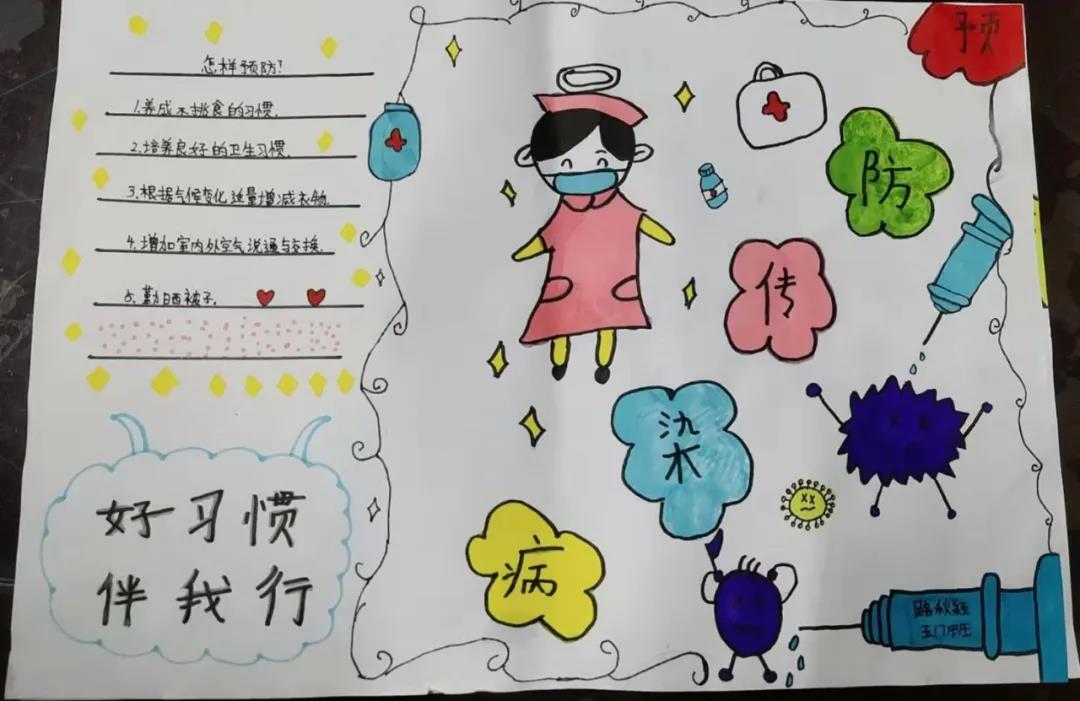 怎样预防!
1.养成不挑食的习惯.
2.培养良好的卫生习惯.
3.根据气候变化适量增减衣物.
4.增加室内外空气流通与交换.
5.勤晒被子.
好习惯
伴我行
预
防
传
染
病